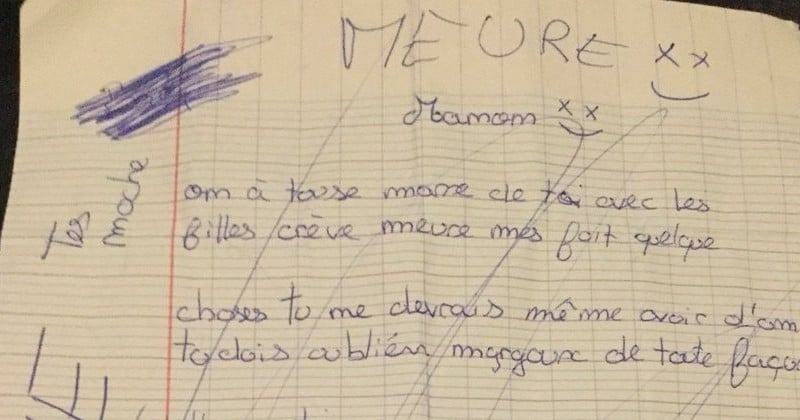 MEURE xx
Mamam xx
Tes moche
om à tous marre de toi avec les
filles crève meure mes fait quelque
choses tu me devrais même avoir d'am
tu dois oublién margaux de toute façon